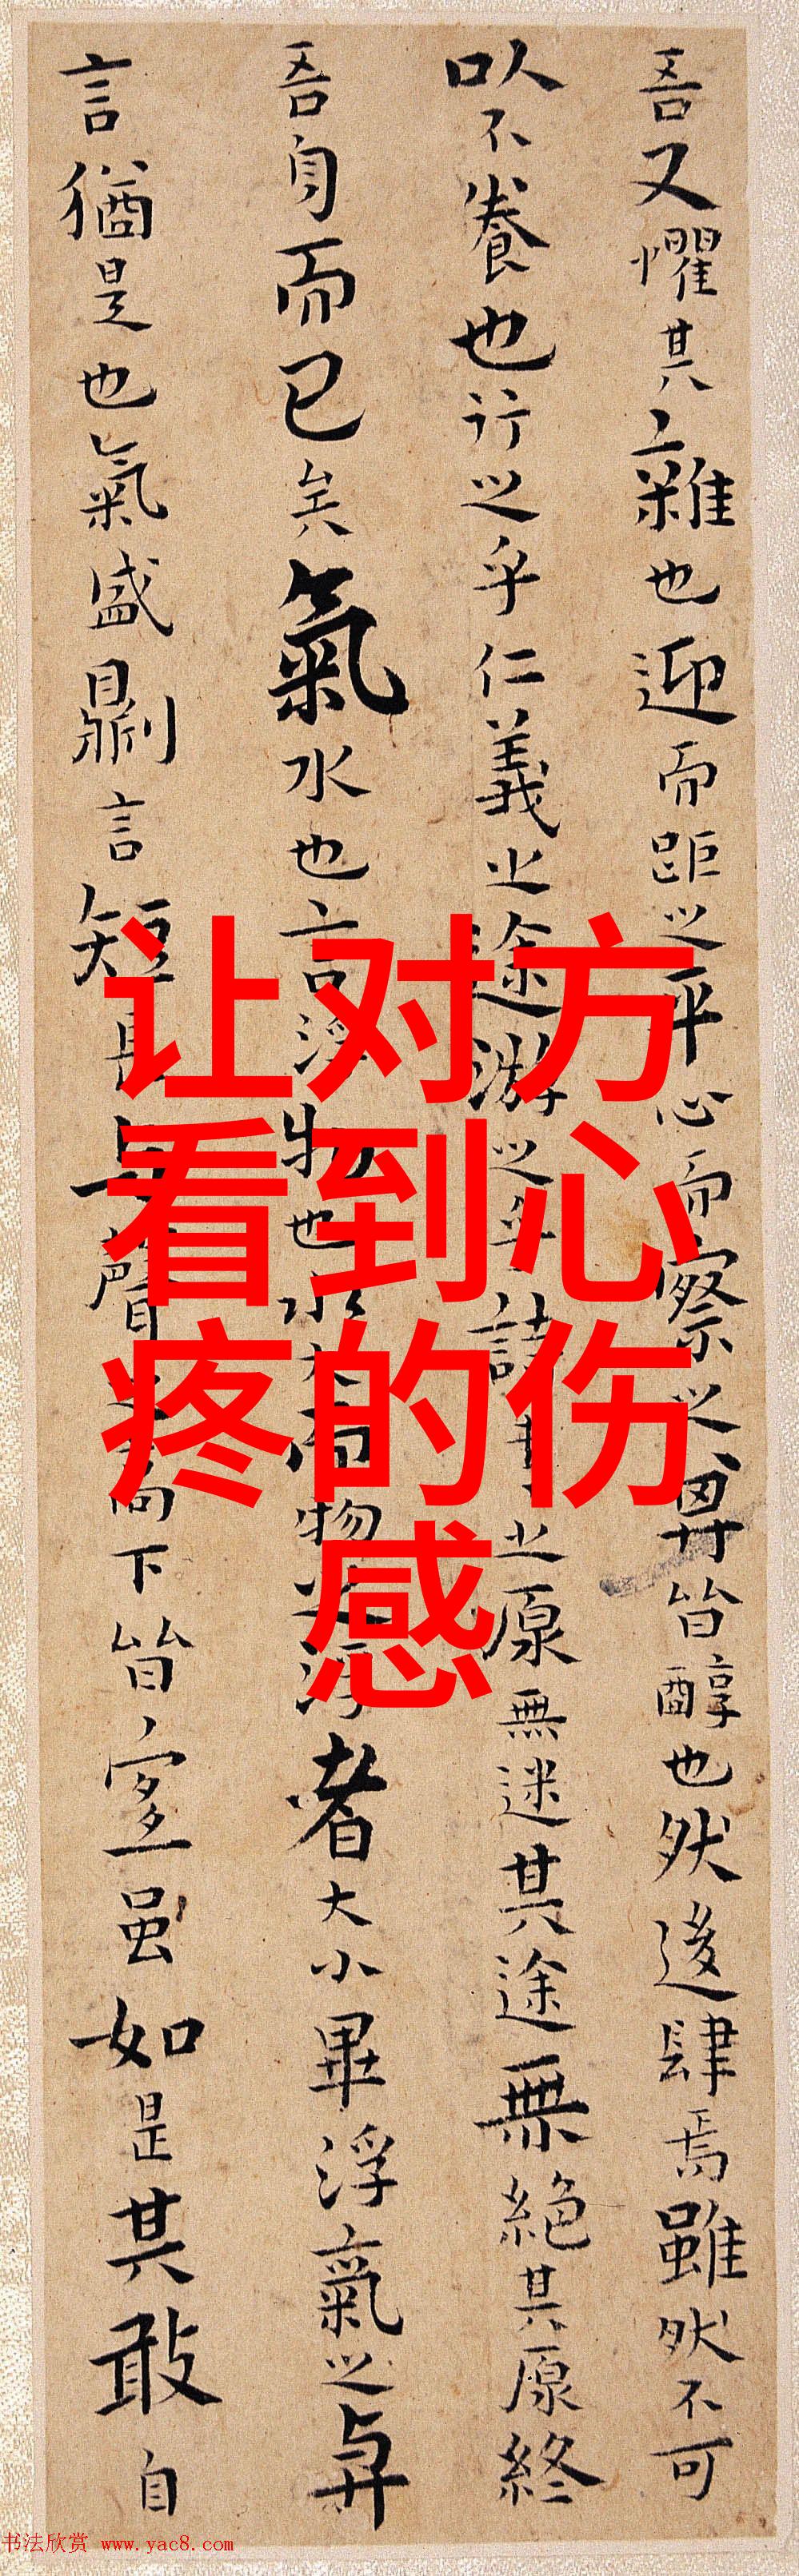 吾又懼其雜也迎而距之平心而察之其皆醇也然後肆焉雖然不可
以不養也行之乎仁義之途游之乎詩書之原無迷其途無絶其原終
吾身而已矣氣水也言浮物也水大而物之浮者大小畢浮氣之與
言猶是也氣盛則言短長與聲之高下皆宜虽如是其敢自
让对方
看到心
疼的伤
感
书法欣赏 www.yac8.com